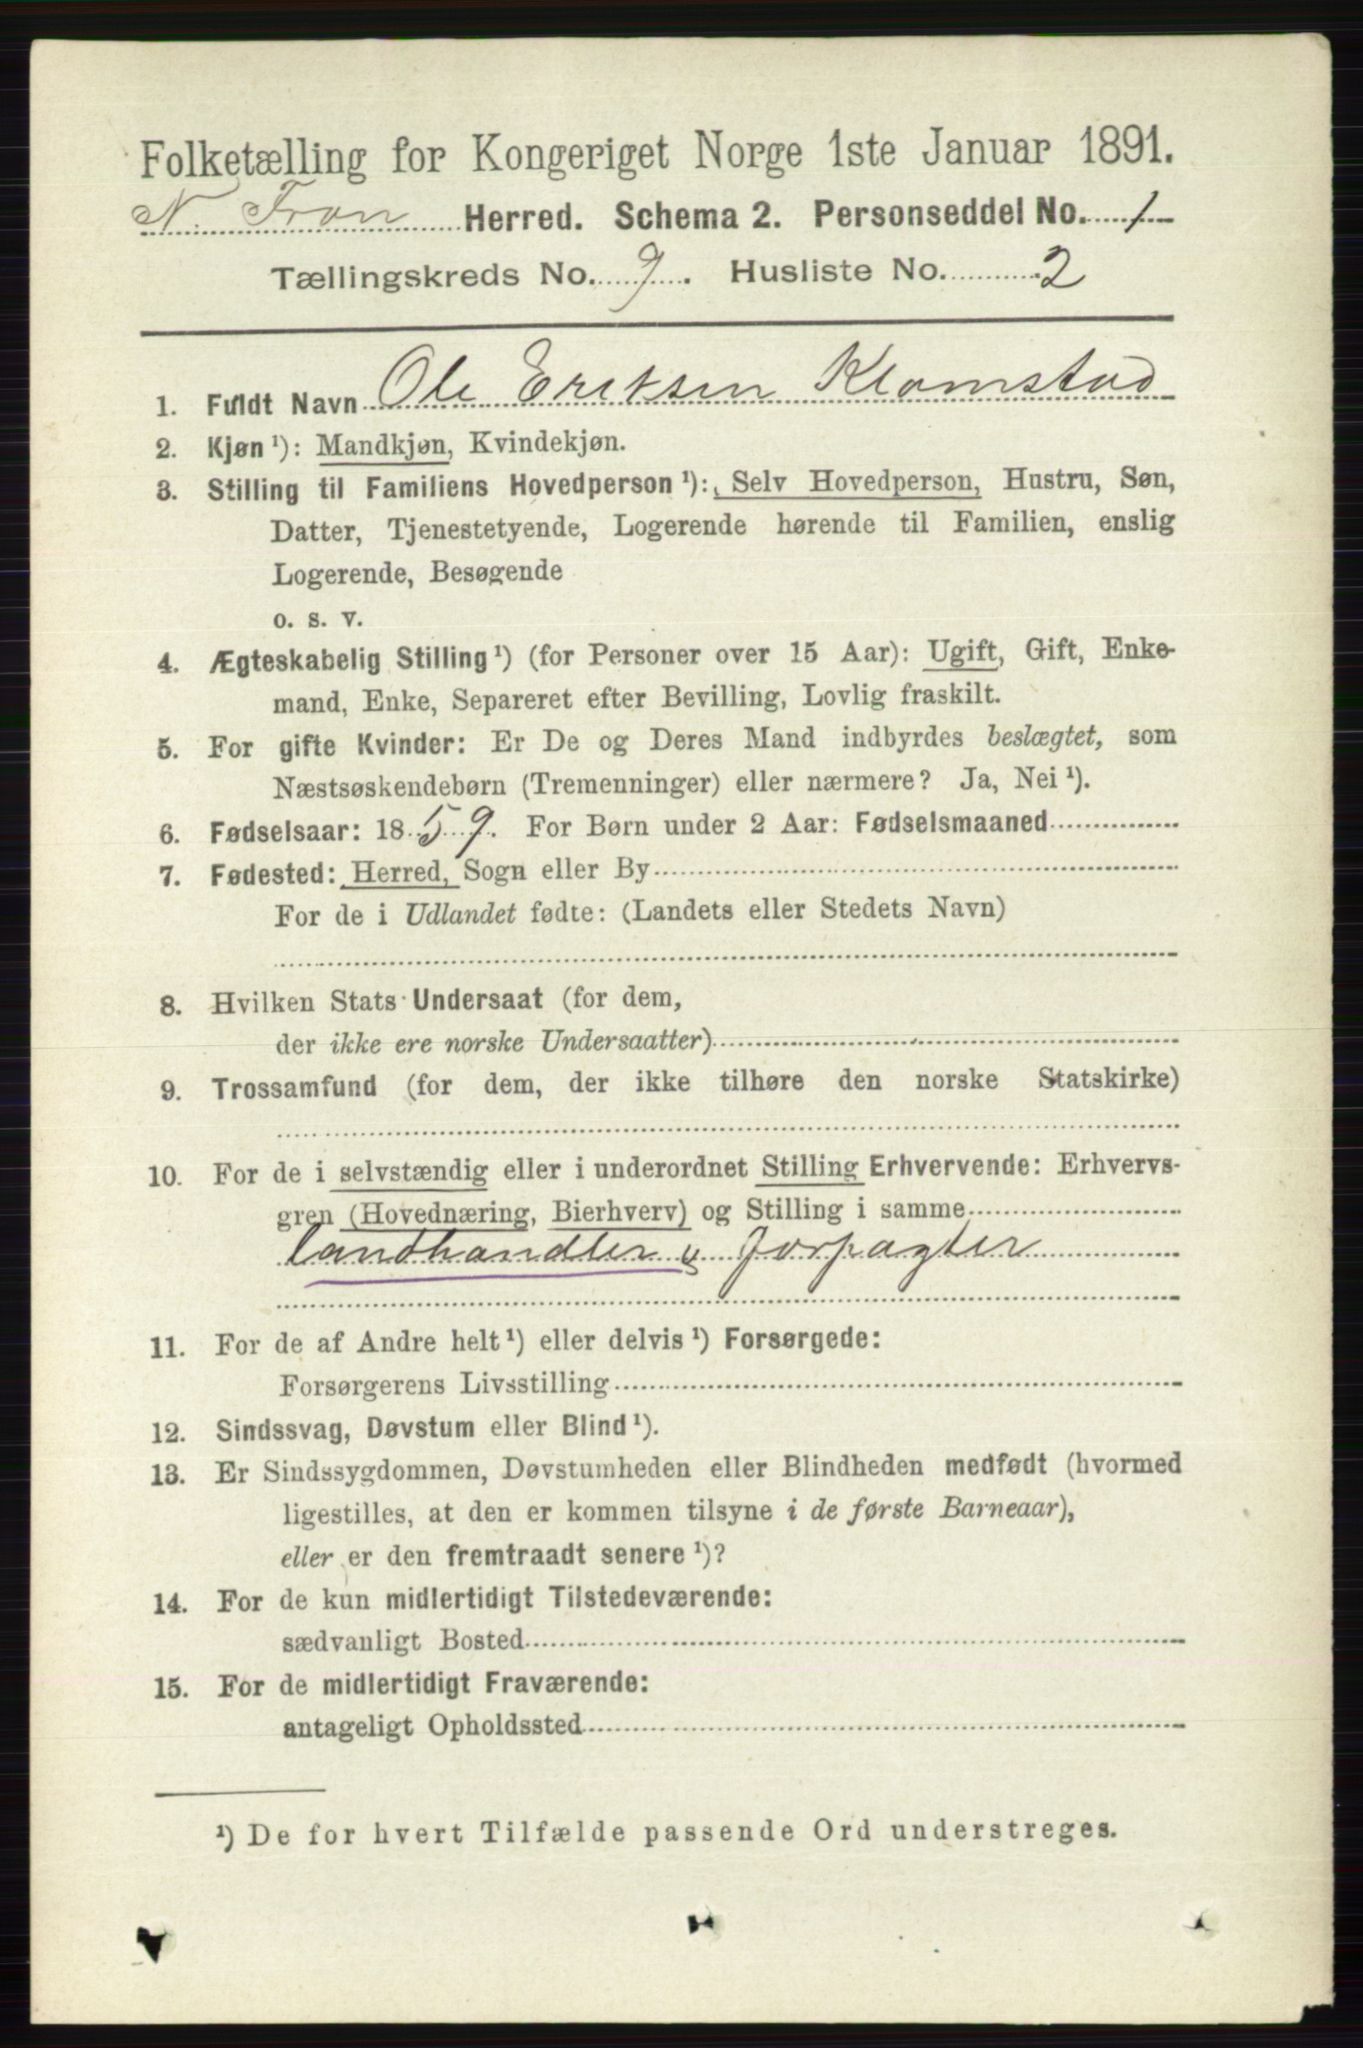 Folketælling for Kongeriget Norge 1ste Januar 1891.
N. Fron Herred. Schema 2. Personseddel No. 1
Tællingskreds No. 9. Husliste No. 2
1. Fuldt Navn Ole Eriksen Klomstad
2. Kjøn ¹): Mandkjøn, Kvindekjøn.
3. Stilling til Familiens Hovedperson ¹): Selv Hovedperson, Hustru, Søn,
Datter, Tjenestetyende, Logerende hørende til Familien, enslig
Logerende, Besøgende
o. s. v.
4. Ægteskabelig Stilling ¹) (for Personer over 15 Aar): Ugift, Gift, Enke-
mand, Enke, Separeret efter Bevilling, Lovlig fraskilt.
5. For gifte Kvinder: Er De og Deres Mand indbyrdes beslægtet, som
Næstsøskendebørn (Tremenninger) eller nærmere? Ja, Nei ¹).
6. Fødselsaar: 1859. For Børn under 2 Aar: Fødselsmaaned
7. Fødested: Herred, Sogn eller By
For de i Udlandet fødte: (Landets eller Stedets Navn)
8. Hvilken Stats Undersaat (for dem,
der ikke ere norske Undersaatter)
9. Trossamfund (for dem, der ikke tilhøre den norske Statskirke)
10. For de i selvstændig eller i underordnet Stilling Erhvervende: Erhvervs-
gren (Hovednæring, Bierhverv) og Stilling i samme
Landhandler Forpagter
11. For de af Andre helt ¹) eller delvis ¹) Forsørgede:
Forsørgerens Livsstilling
12. Sindssvag, Døvstum eller Blind ¹).
13. Er Sindssygdommen, Døvstumheden eller Blindheden medfødt (hvormed
ligestilles, at den er kommen tilsyne i de første Barneaar),
eller er den fremtraadt senere ¹)?
14. For de kun midlertidigt Tilstedeværende:
sædvanligt Bosted
15. For de midlertidigt Fraværende:
antageligt Opholdssted
¹) De for hvert Tilfælde passende Ord understreges.